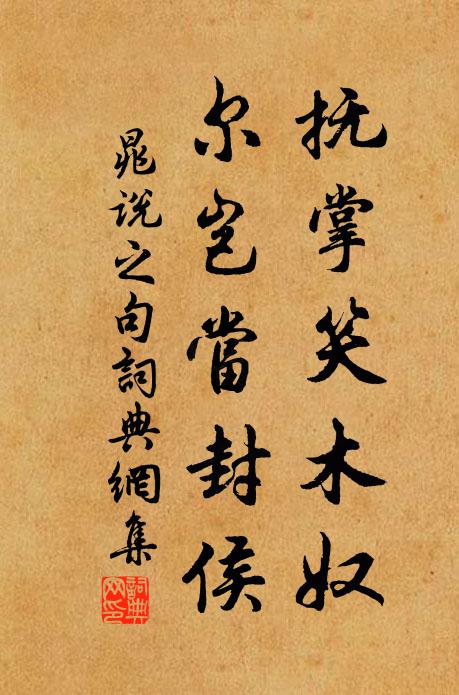 抚掌笑木奴
尔岂當封侯
晁说之句詞典網集
詞典網印